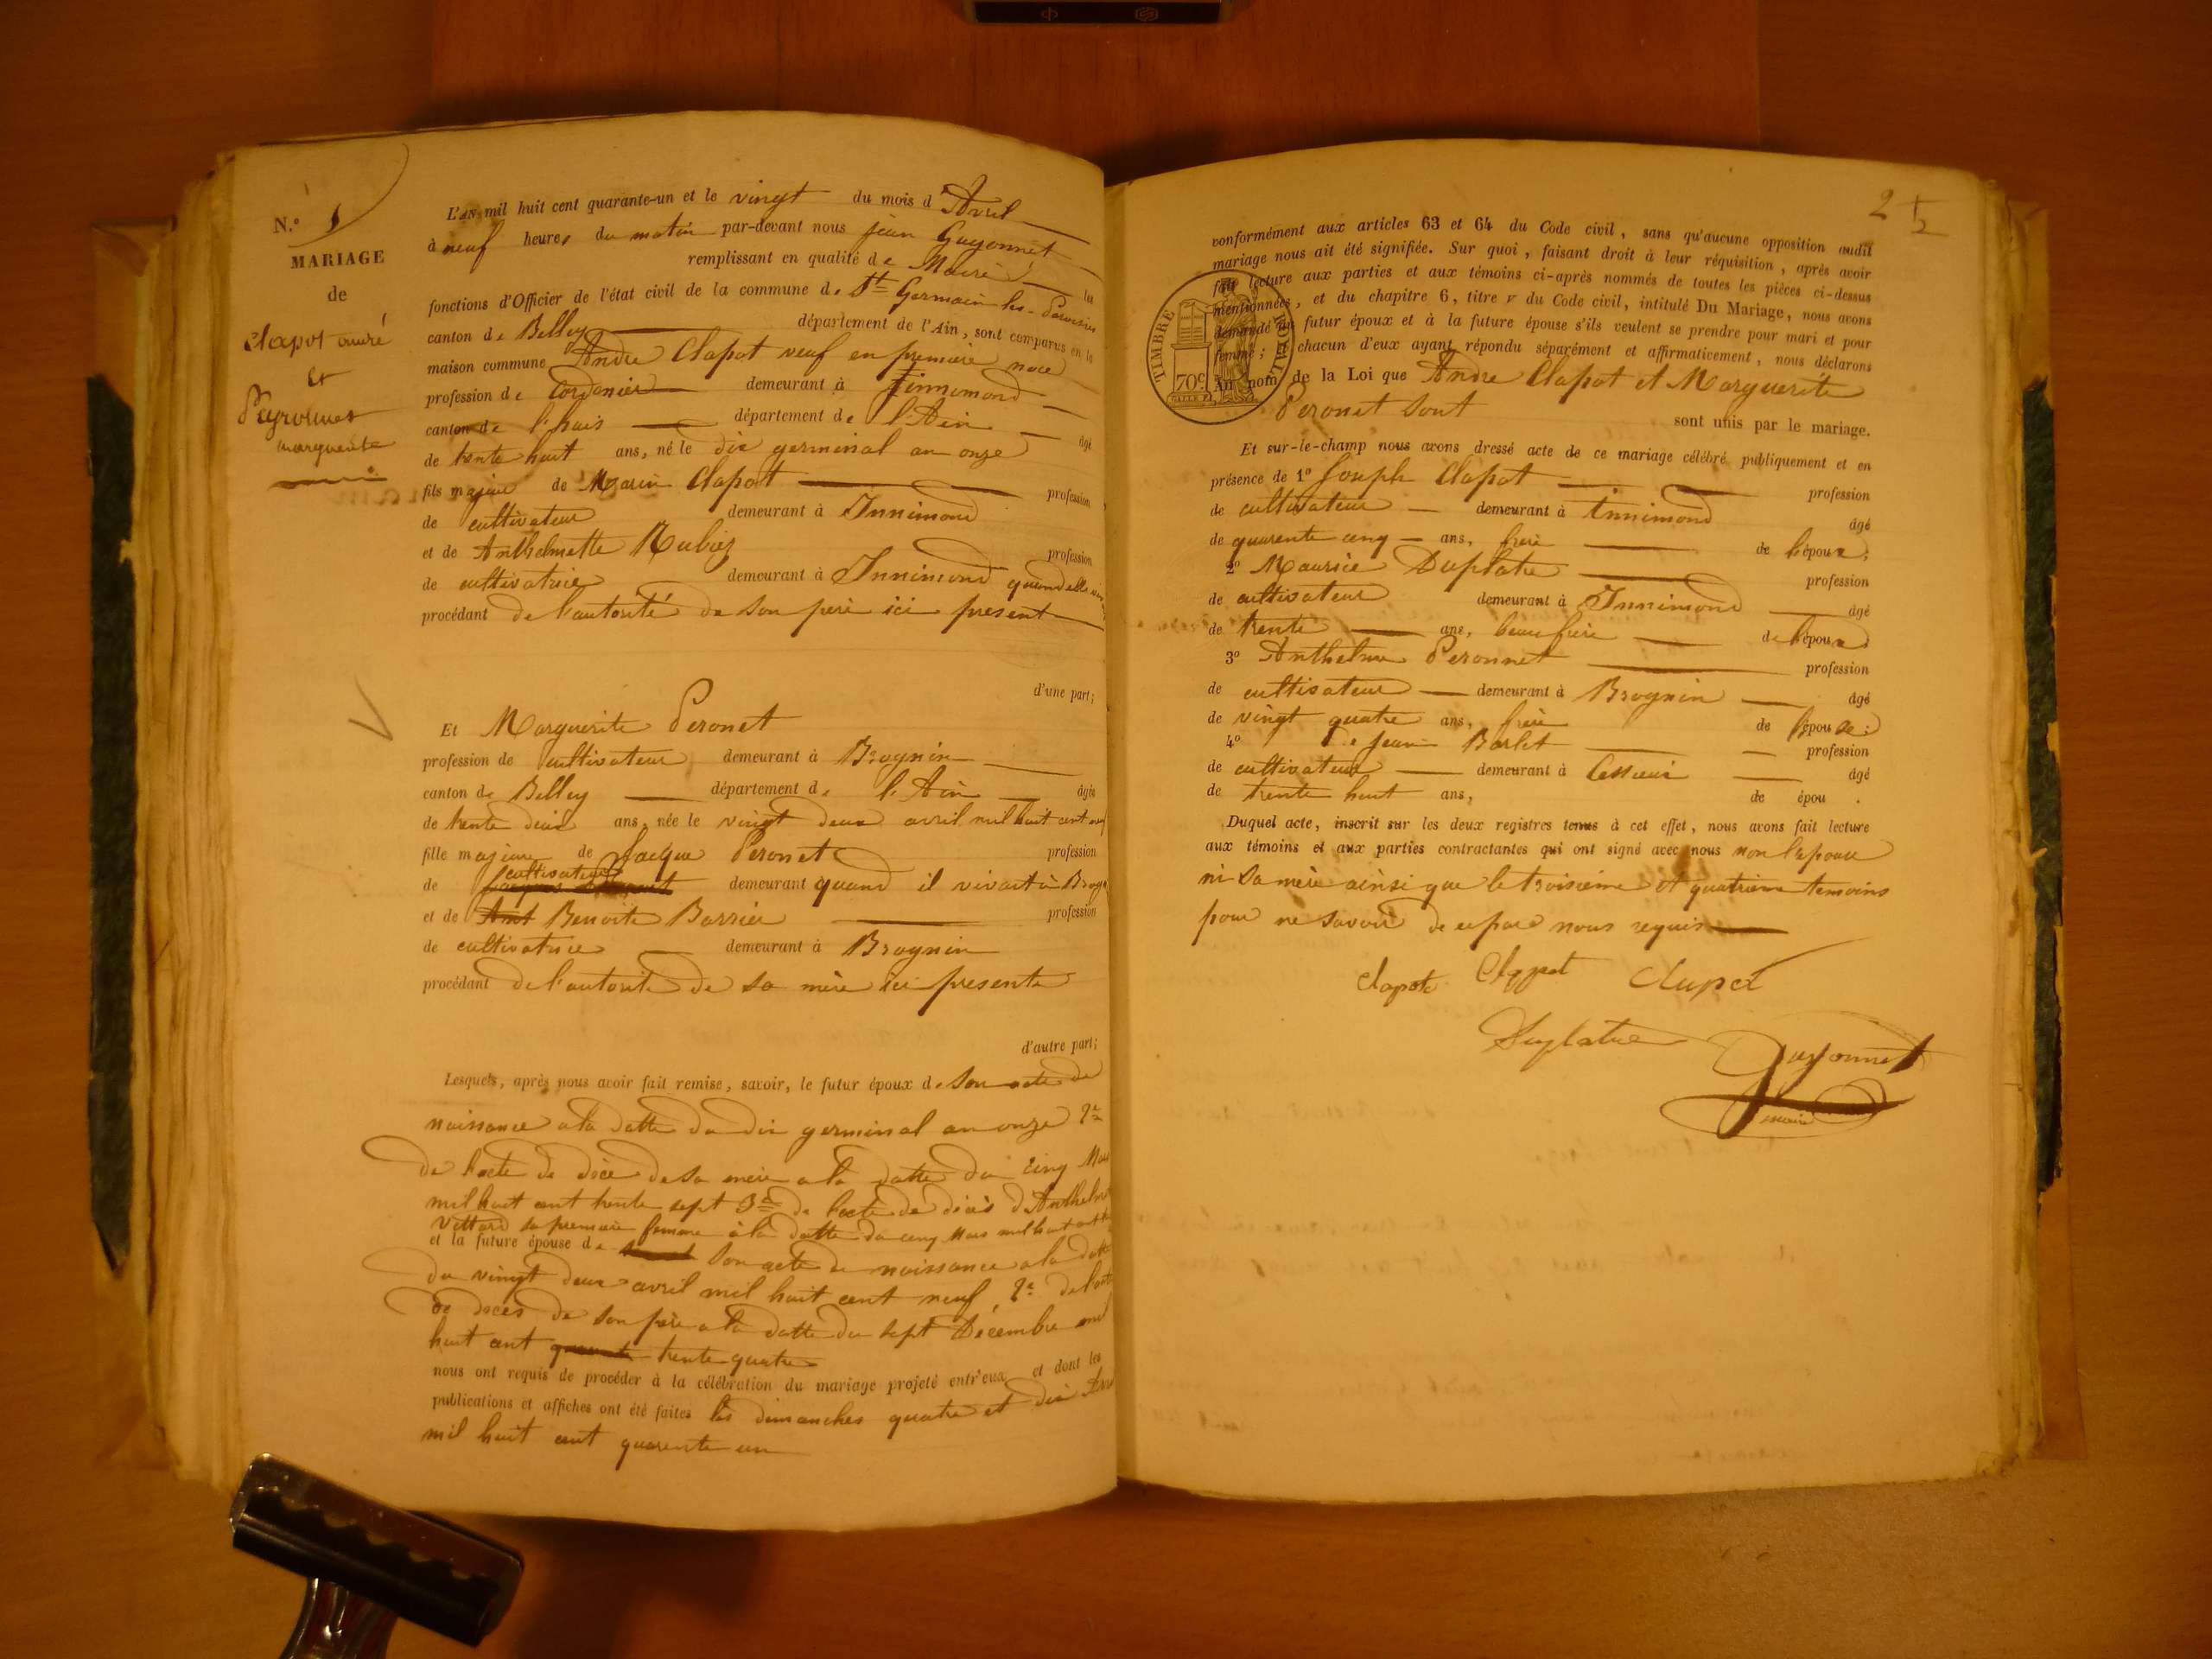 N.° 1
MARIAGE
de
Clapot andré
Et
Peyronnet
marguerite
L'AN mil huit cent quarante-un et le vingt du mois d'Avril
à neuf heures du matin par-devant nous jean Guyonnet
remplissant en qualité de Maire les
fonctions d'Officier de l'état civil de la commune de St Germain les Paroisses
canton de Belley département de l'Ain, sont comparus en la
maison commune Andre Clapot veuf en premiere noce
profession de Cordonier demeurant à Innimond
canton de l'huis département de l'Ain âgé
de trente huit ans, né le dix germinal an onze
fils majeur de Marin Clapot profession
de cultivateur demeurant à Innimond
et de Anthelmette Rubiez profession
de cultivatrice demeurant à Innimond quand elle
procédant de l'autorité de son père ici present
d'une part;
Et Marguerite Peronet
profession de cultivateur demeurant à Brognin
canton de Belley département de l'Ain âgée
de trente deux ans, née le vingt deux avril mil huit cent neuf
fille majeure de Jacque Peronet profession
de cultivateur demeurant quand il vivait à Brogn
et de Benoite Barrier profession
de cultivatrice demeurant à Brognin
procédant de l'autorité de sa mère ici presente
d'autre part;
Lesquels, après nous avoir fait remise, savoir, le futur époux de Son acte de
naissance a la datte du dix germinal an onze 2e
De l'acte de décé de sa mère a la datte du cinq Mars
mil huit cent trente sept 3e de l'acte de décès d'Anthelm
Vettard sa premiere femme à la datte du cinq Mars mil huit cent
et la future épouse de Son acte de naissance a la datte
du vingt deux avril mil huit cent neuf, 2e de l'acte
de décès de son père a la datte du sept Décembre mil
huit cent trente quatre
nous ont requis de procéder à la célébration du mariage projeté entr'eux et dont les
publications et affiches ont été faites les dimanches quatre et dix Avril
mil huit cent quarente un
2
conformément aux articles 63 et 64 du Code civil, sans qu'aucune opposition audit
mariage nous ait été signifiée. Sur quoi, faisant droit à leur réquisition, après avoir
fait lecture aux parties et aux témoins ci-après nommés de toutes les pièces ci-dessus
mentionnées, et du chapitre 6, titre v du Code civil, intitulé Du Mariage, nous avons
demandé au futur époux et à la future épouse s'ils veulent se prendre pour mari et pour
femme; chacun d'eux ayant répondu séparément et affirmativement, nous déclarons
Au nom de la Loi que Andre Clapot et Marguerite
Peronet Sont
sont unis par le mariage.
TIMBRE ROYAL
70c
Et sur-le-champ nous avons dressé acte de ce mariage célébré publiquement et en
présence de 1° Joseph Clapot profession
de cultivateur demeurant à Innimond âgé
de quarente cinq ans, frere de l'époux;
2° Maurice Duplatre profession
de cultivateur demeurant à Innimond âgé
de trente ans, beau frere de l'époux;
3° Anthelme Peronnet profession
de cultivateur demeurant à Brognin âgé
de vingt quatre ans, frere de l'épouse;
4° Jean Barlet profession
de cultivateur demeurant à âgé
de trente huit ans, de épou .
Duquel acte, inscrit sur les deux registres tenus à cet effet, nous avons fait lecture
aux témoins et aux parties contractantes qui ont signé avec nous non l'épouse
ni Sa mère ainsi que le troisième et quatrieme temoins
pour ne savoir de ce par nous requis
Clapot Clapot Clapot
Duplatre Guyonnet
maire